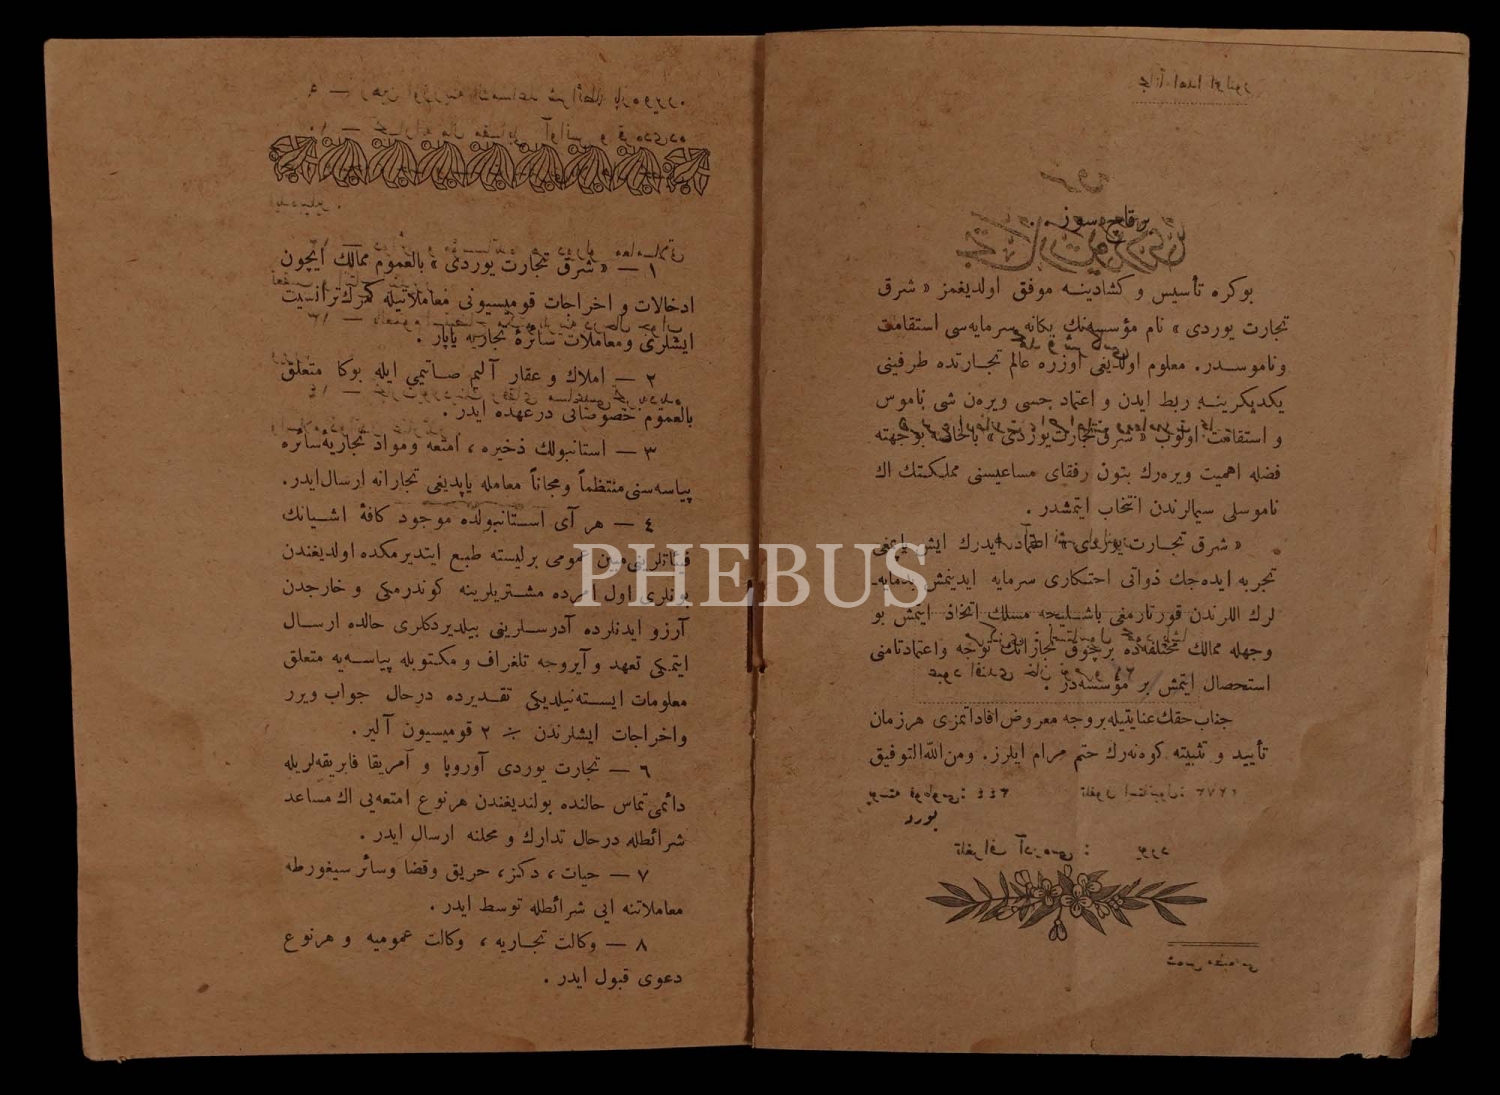 برقاچ سوز
بوكره تأسيس و كشادينه موفق اولديغمز « شرق
تجارت يوردى » نام مؤسسه‌نك يكانه سرمايه‌سى استقامت
وناموسدر. معلوم اولديغى اوزره عالم تجارتده طرفينى
يكديكرينه ربط ايدن و اعتماد حسى ويره‌ن شى ناموس
و استقامت اولوب « شرق تجارت يوردى » بالخاصه بوجهته
فضله اهميت ويره‌رك بتون رفقاى مساعيسنى مملكتك اك
ناموسلى سيمالرندن انتخاب ايتمشدر .
« شرق تجارت يوردى » اعتماد ايدرك ايش ياپمغى
تجربه ايده‌جك ذواتى احتكارى سرمايه ايدينمش
لرك اللرندن قورتارمغى باشليجه مسلك اتخاذ ايتمش بو
وجهله ممالك مختلفه‌ده برچوق تجارانك توجه واعتمادتامنى
استحصال ايتمش بر مؤسسه‌در .
جناب حقك عنايتيله بروجه معروض افاداتمزى هرزمان
تأييد و تثبيته كوشه‌رك ختم مرام ايلرز. ومن الله التوفيق
١ — « شرق تجارت يوردى » بالعموم ممالك ايچون
ادخالات و اخراجات قوميسيونى معاملاتيله كمرك ترانسيت
ايشلرى ومعاملات سائرهٔ تجاريه ياپار .
٢ — املاك و عقار آليم صاتيمى ايله بوكا متعلق
بالعموم خصوصاتى درعهده ايدر .
٣ — استانبولك ذخيره ، امتعه ومواد تجاريهٔ سائره
پياسه‌سنى منتظماً ومجاناً معامله ياپديغى تجارانه ارسال ايدر.
٤ — هر آى استانبولده موجود كافهٔ اشيانك
فيئاتلرينى مبين عمومى برليسته طبع ايتديرمكده اولديغندن
بونلرى اول امرده مشتريلرينه كوندرمكى و خارجدن
آرزو ايدنلرده آدرسلرينى بيلديردكلرى حالده ارسال
ايتمكى تعهد و آيروجه تلغراف و مكتوبله پياسه‌يه متعلق
معلومات ايسته‌نيلديكى تقديرده درحال جواب ويرر
واخراجات ايشلرندن ٪ ٢ قوميسيون آلير .
٦ — تجارت يوردى آوروپا و آمريقا فابريقه‌لريله
دائمى تماس حالنده بولنديغندن هرنوع امتعه‌يى اك مساعد
شرائطله درحال تدارك و محلنه ارسال ايدر .
٧ — حيات ، دكز، حريق وقضا وسائر سيغورطه
معاملاتنه ايى شرائطله توسط ايدر .
٨ — وكالت تجاريه ، وكالت عموميه و هرنوع
دعوى قبول ايدر .
PHEBUS